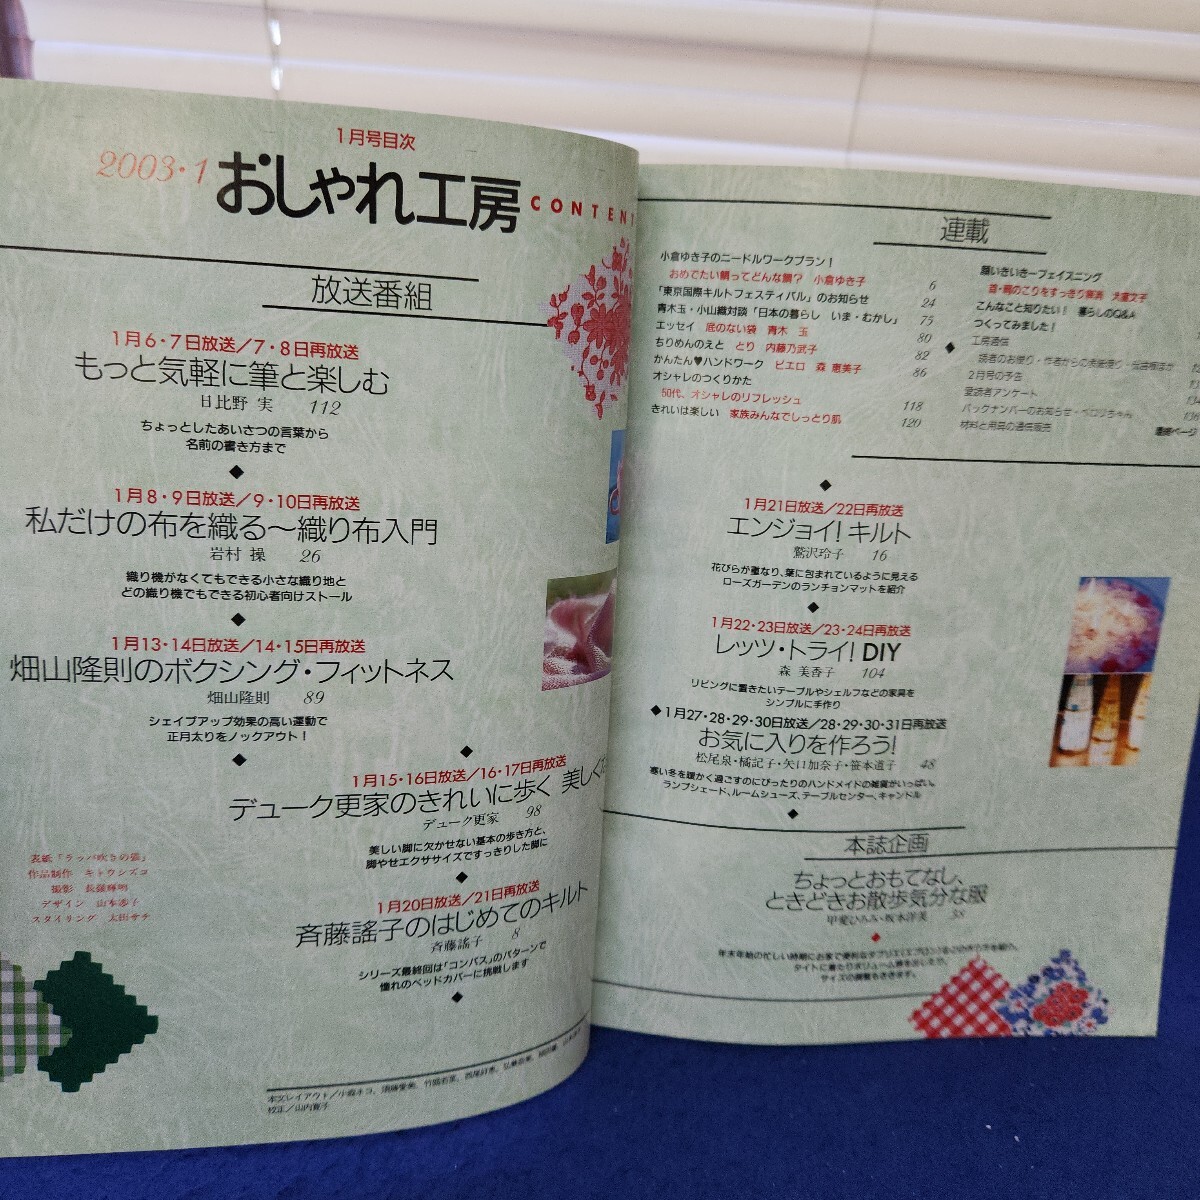 1月号目次
2003・1
おしゃれ工房
CONTEN
放送番組
1月6・7日放送/7・8日再放送
もっと気軽に筆と楽しむ
日比野 実 112
ちょっとしたあいさつの言葉から
名前の書き方まで
1月8・9日放送/9・10日再放送
私だけの布を織る〜織り布入門
岩村 操 26
織り機がなくてもできる小さな織り地と
どの織り機でもできる初心者向けストール
1月13・14日放送/14・15日再放送
畑山隆則のボクシング・フィットネス
畑山隆則 89
シェイプアップ効果の高い運動で
正月太りをノックアウト!
1月15・16日放送/16・17日再放送
デューク更家のきれいに歩く 美しく
デューク更家 98
美しい脚に欠かせない基本の歩き方と、
脚やせエクササイズですっきりした脚に
1月20日放送/21日再放送
斉藤謠子のはじめてのキルト
斉藤謠子 8
シリーズ最終回は「コンパス」のパターンで
憧れのベッドカバーに挑戦します
表紙「ラッパ吹きの張」
作品制作 キトウシズコ
撮影
デザイン 山本
スタイリング 太田サチ
本文レイアウト/
校正/山内寛子
連載
小倉ゆき子のニードルワークプラン!
おめでたい鯛ってどんな鯛? 小倉ゆき子 6
「東京国際キルトフェスティバル」のお知らせ 24
青木玉・小山織対談「日本の暮らし いま・むかし」 75
エッセイ 底のない袋 青木 玉 80
ちりめんのえと とり 内藤乃武子 82
かんたん♥ハンドワーク ピエロ 森 恵美子 86
オシャレのつくりかた
50代、オシャレのリフレッシュ 118
きれいは楽しい 家族みんなでしっとり肌 120
顔いきいきーフェイスニング
首・肩のこりをすっきり解消 犬童文子
こんなこと知りたい! 暮らしのQ&A
つくってみました!
工房通信
読者のお便り・作者からの
2月号の予告
愛読者アンケート 134
バックナンバーのお知らせ・ 136
材料と用具の通信販売 最終ページ
1月21日放送/22日再放送
エンジョイ! キルト
鷲沢玲子 16
花びらが重なり、葉に包まれているように見える
ローズガーデンのランチョンマットを紹介
1月22・23日放送/23・24日再放送
レッツ・トライ! DIY
森 美香子 104
リビングに置きたいテーブルやシェルフなどの家具を
シンプルに手作り
1月27・28・29・30日放送/28・29・30・31日再放送
お気に入りを作ろう!
松尾泉・橘記子・矢口加奈子・笹本道子 48
寒い冬を暖かく過ごすのにぴったりのハンドメイドの雑貨がいっぱい。
ランプシェード、ルームシューズ、テーブルセンター、キャンドル
本誌企画
ちょっとおもてなし、
ときどきお散歩気分な服
甲斐ひろみ・坂本洋美 38
年末年始の忙しい時期にお家で便利な
サイズの調整もききます。